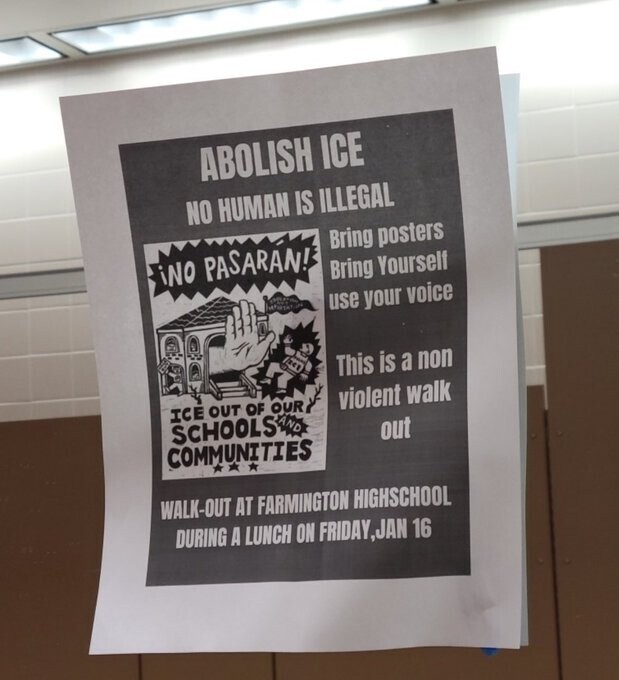 ABOLISH ICE
NO HUMAN IS ILLEGAL
¡NO PASARÁN!
ICE OUT OF OUR
SCHOOLS AND
COMMUNITIES
Bring posters
Bring Yourself
use your voice
This is a non
violent walk
out
WALK-OUT AT FARMINGTON HIGHSCHOOL
DURING A LUNCH ON FRIDAY,JAN 16